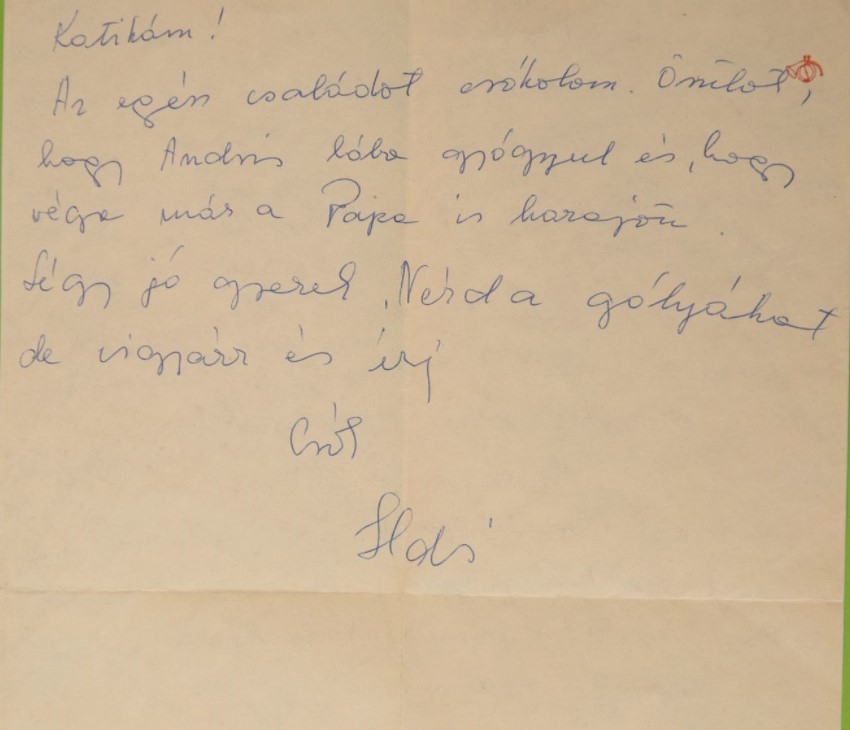 Katikám!
Az egész családot csókolom. Örülök,
hogy András lába gyógyul és, hogy
vége már a Papa is hazajön.
Légy jó gyerek, Nézd a gólyákat
de vigyázz és írj
Csók
Ildi